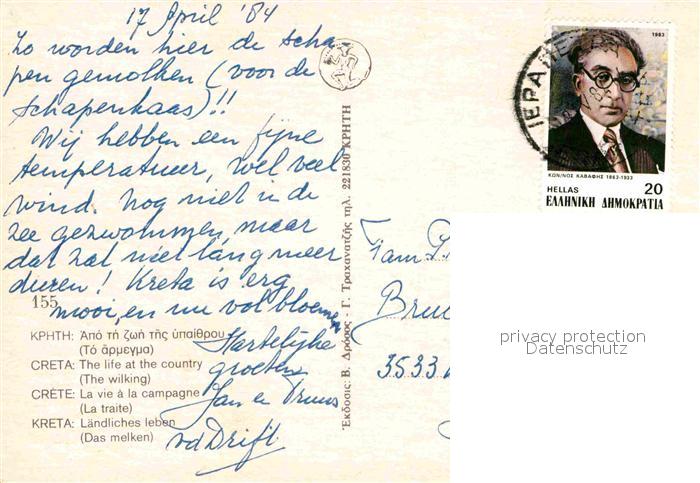 17 April '84
Zo worden hier de scha-
pen gemolken (voor de
schapenkaas)!!
Wij hebben een fijne
temperatuur, wel veel
wind. Nog niet in de
zee gezwommen, maar
dat zal niet lang meer
duren! Kreta is erg
mooi, en nu vol bloemen
Hartelijke
groeten
Jan en Truus
v d Drift
155
ΚΡΗΤΗ: Ἀπό τή ζωή τῆς ὑπαίθρου
(Τό ἄρμεγμα)
CRETA: The life at the country
(The wilking)
CRÈTE: La vie à la campagne
(La traite)
KRETA: Ländliches leben
(Das melken)
Ἐκδοσις: Β. Δρόσος - Γ. Τραχανατζῆς τηλ. 221830 ΚΡΗΤΗ
1983
ΙΕΡΑ
ΚΩΝ/ΝΟΣ ΚΑΒΑΦΗΣ 1863-1933
HELLAS 20
ΕΛΛΗΝΙΚΗ ΔΗΜΟΚΡΑΤΙΑ
Fam
Bru
3533
privacy protection
Datenschutz